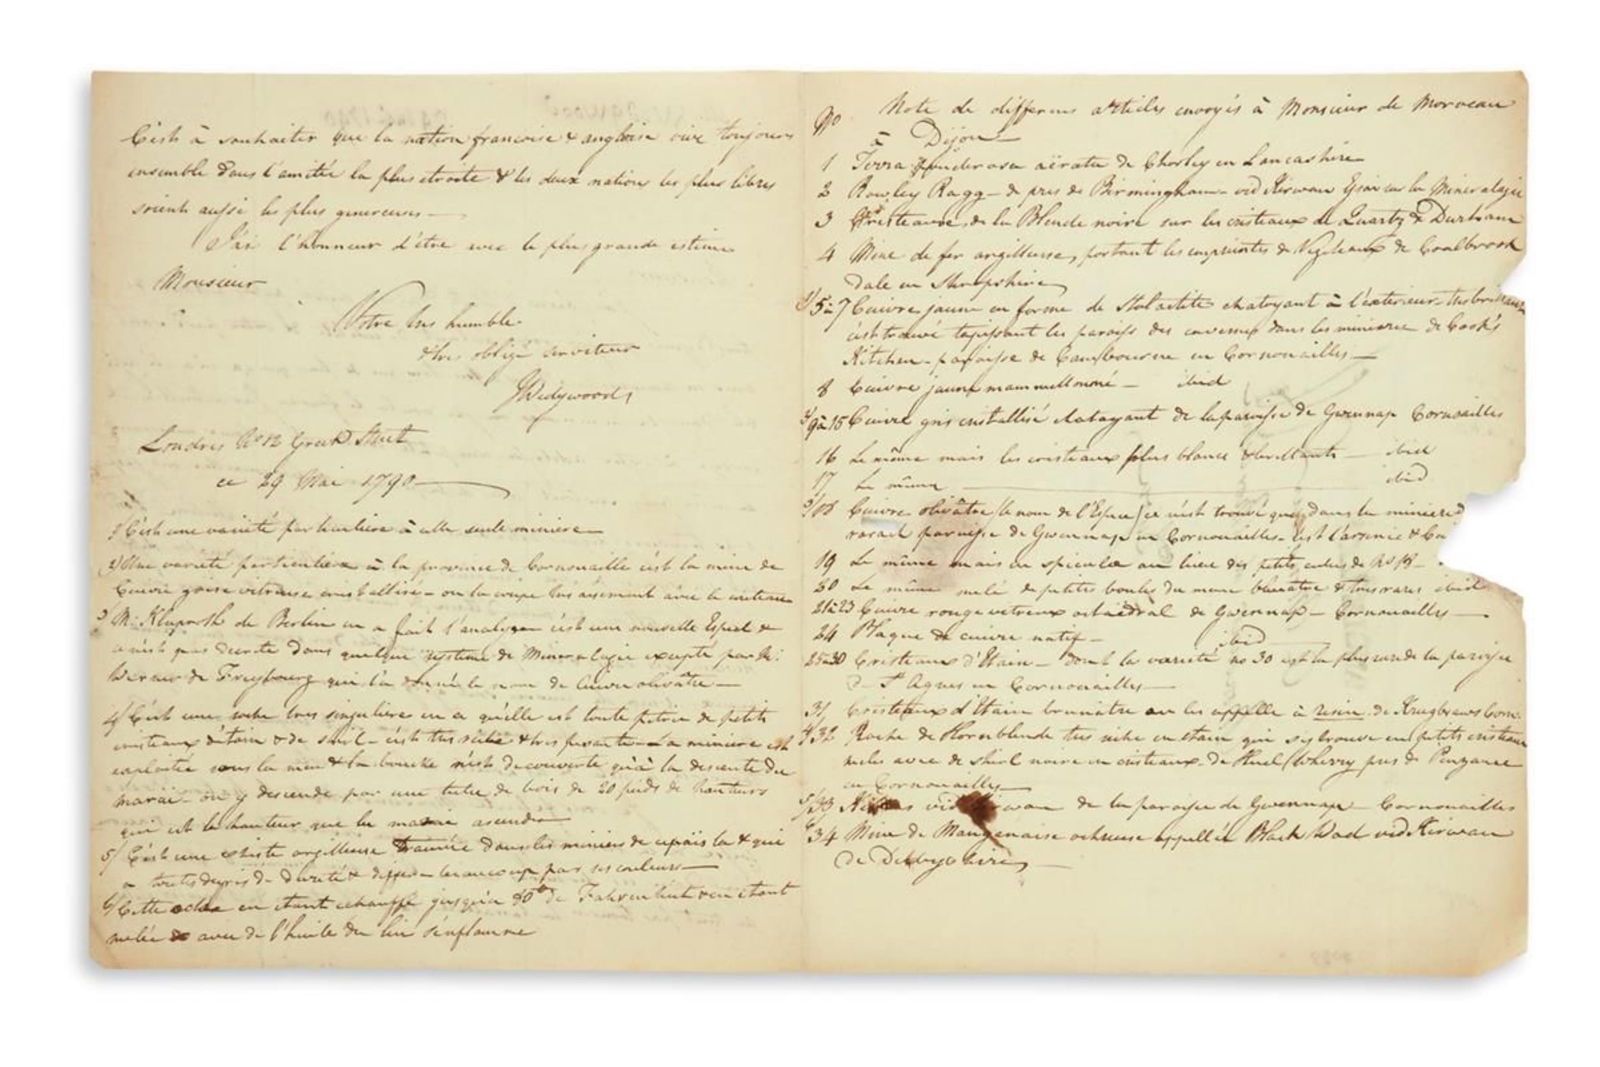 C'est à souhaiter que la nation francoise & angloise vive toujours
ensemble dans l'amitée la plus etroite & les deux nations les plus libres
soient aussi les plus genereuses —
J'ai l'honneur d'être avec la plus grande estime
Monsieur
Votre tres humble
& tres obligé serviteur
J Wedgwood
Londres No 12 Greek Street
ce 29 Mai 1790
1) C'est une varieté particuliere à cette seule miniere
2) Une varieté particuliere à la province de Cornouaille c'est la mine de
Cuivre grise vitreuse cristallisé — on la coupe tres aisement avec le couteau
3 Mr. Klaproth de Berlin en a fait l'analyse c'est une nouvelle Espece &
n'est pas decrite dans quelque systeme de Mineralogie excepté par Mr.
Werner de Freybourg qui l'a donné le nom de Cuivre olivâtre —
4) C'est une roche tres singuliere en ce qu'elle est toute petrie de petits
cristeaux d'étain & de shirl — c'est tres riche & tres pesante — La miniere est
exploitée sous la mer & la bouche n'est decouverte qu'à la descente du
marai — on y descende par une tube de bois de 20 pieds de hauteur
qui est la hauteur que la marai ascende
5) C'est une schiste argilleuse trouvée dans les minieres de &
a touts degrés de dureté & differe beaucoup par ses couleurs —
6) Cette ochre en etant echauffé jusqu'a 90° de Fahrenheit & en etant
melée avec de l'huile de lin s'enflamme
No Note de differens articles envoyés à Monsieur de Morveau
à Dijon —
1 Terra ponderosa aërata de Chorley en Lancashire
2 Rowley Ragg — de pres de Birmingham — vid Kirwan Essai sur la Mineralogie
3 Cristeaux de la Blende noire sur les cristeaux de Quartz de Durham
4 Mine de fer argilleuse, portant les empreintes de Vegeteaux de Coalbrook
dale en Shropshire
1) 5 à 7 Cuivre jaune en forme de Stalactite chatoyant à l'exterieur — tres brillant
c'est trouvé tapissant les parois des cavernes dans les minieres de Cook's
Kitchen — paroisse de Cambourne en Cornouailles —
8 Cuivre jaune mammellonné — ibid
2) 9 à 15 Cuivre gris cristallisé chatoyant de la paroisse de Gwennap Cornouailles
16 Le même mais les cristeaux plus blancs & brillants — ibid
17 Le même — ibid
3) 18 Cuivre olivâtre (le nom de l'Espece) ce n'est trouvé que dans la miniere d
paroisse de Gwennap en Cornouailles — c'est l'arsenic & Cu
19 Le même mais en spicules au lieu des petits cubes de No 18 —
20 Le même melé de petites boules du meme & tres rares ibid
21 à 23 Cuivre rouge vitreux octaédral de Gwennap — Cornouailles —
24 Plaque de cuivre natif — ibid
25 à 30 Cristeaux d'Etain — dont la varieté no 30 est la plus rare de la paroisse
de St Agnes en Cornouailles —
31 Cristeaux d'Etain brunâtre on les appelle à resin de
4) 32 Roche de Hornblende tres riche en etain qui se trouve en petits cristeaux
meles avec de shirl noire en cristeaux de Huel Wherry pres de Penzance
en Cornouailles —
5) 33 Killas vid Kirwan de la paroisse de Gwennap — Cornouailles
6) 34 Mine de Manganaise ochreuse appellée Black Wad vid Kirwan
de Derbyshire